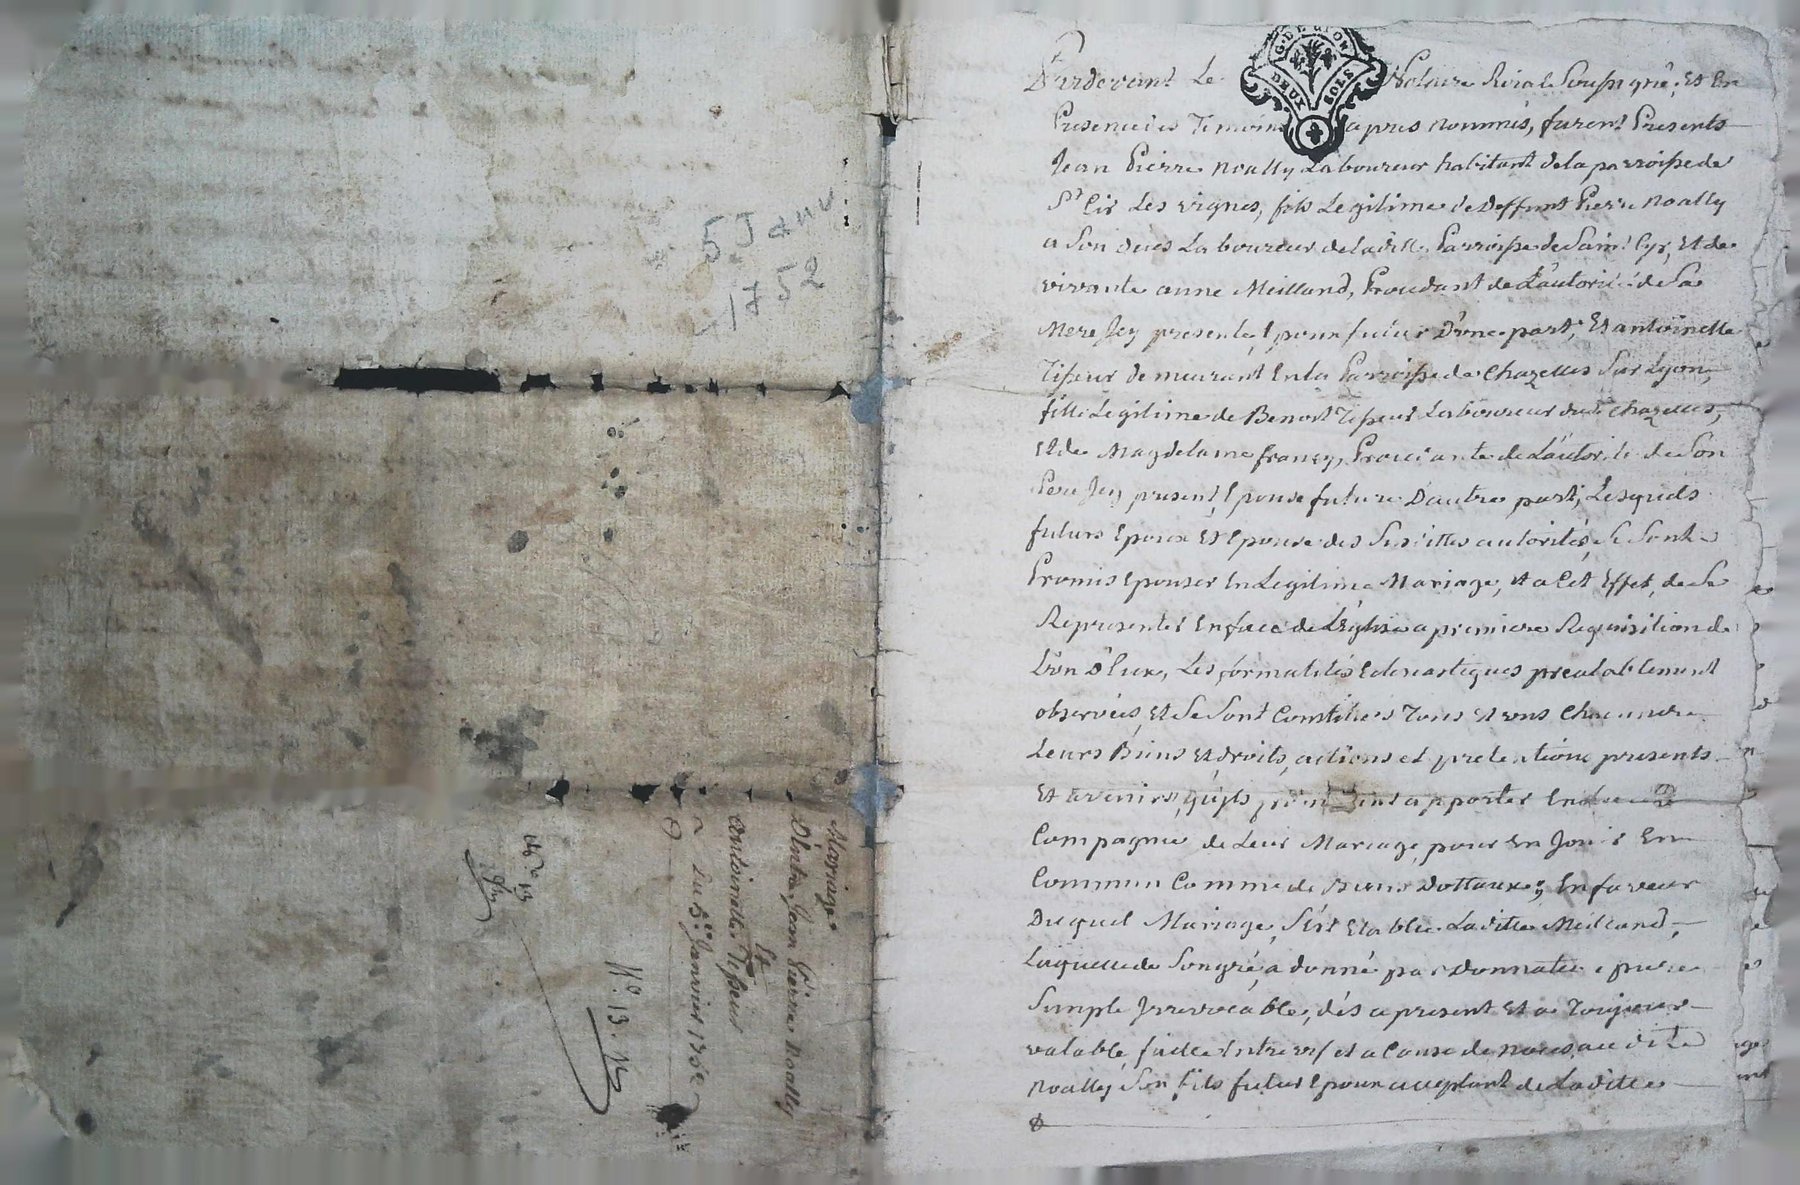 5 Janv
1752
Mariage
D'Entre Jean Pierre Noally
Et
Antoinette Tisseur
Du 5e Janvier 1752
No. 13.
G. DE RIOM
DEUX SOLS
Pardevant Le Notaire Roial Soussigné, Et En
Presence des Temoins apres nommés, furent Presents
Jean Pierre Noally Laboureur habitant de la parroisse de
St Cir Les vignes, fils Legitime de Deffunt Pierre Noally
a Son deces Laboureur de ladite Parroisse de Saint Cyr, Et de
vivante anne Meilland, Proceдant de L'autorité de Sa
Mere Icy presente, Epoux futur D'une part; Et antoinette
Tisseur demeurant En la Parroisse de Chazelles Sur Lyon,
fille Legitime de Benoit Tisseur Laboureur dudt Chazelles,
Et de Magdelaine francy, Procedante de L'autorité de Son
Pere Icy present, Epouse future D'autre part; Lesquels
futurs Epoux Et Epouse des Susdittes autorités, Se Sont
Promis Epouser En Legitime Mariage, Et a Cet Effet, de Se
Representer En face de L'Eglise a premiere Requisition de
L'un D'Eux, Les formalités Eclesiastiques prealablement
observées, Et Se Sont Constitués Tous Et uns Chacuns
Leurs Biens Et droits, actions et pretentions presents
Et avenirs, qu'ils apporter
Compagnie de Leur Mariage, pour En Jouir En
Commun Comme de Biens Dottaux; En faveur
Duquel Mariage, S'est Etablie Laditte Meilland,
Laquelle de Songré, a donné par Donnation pure
Simple Irrevocable, dés a present Et a Toujours
valable, faitte Entre vif et a Cause de Noces, audit
Noally Son fils futur Epoux acceptant de Laditte